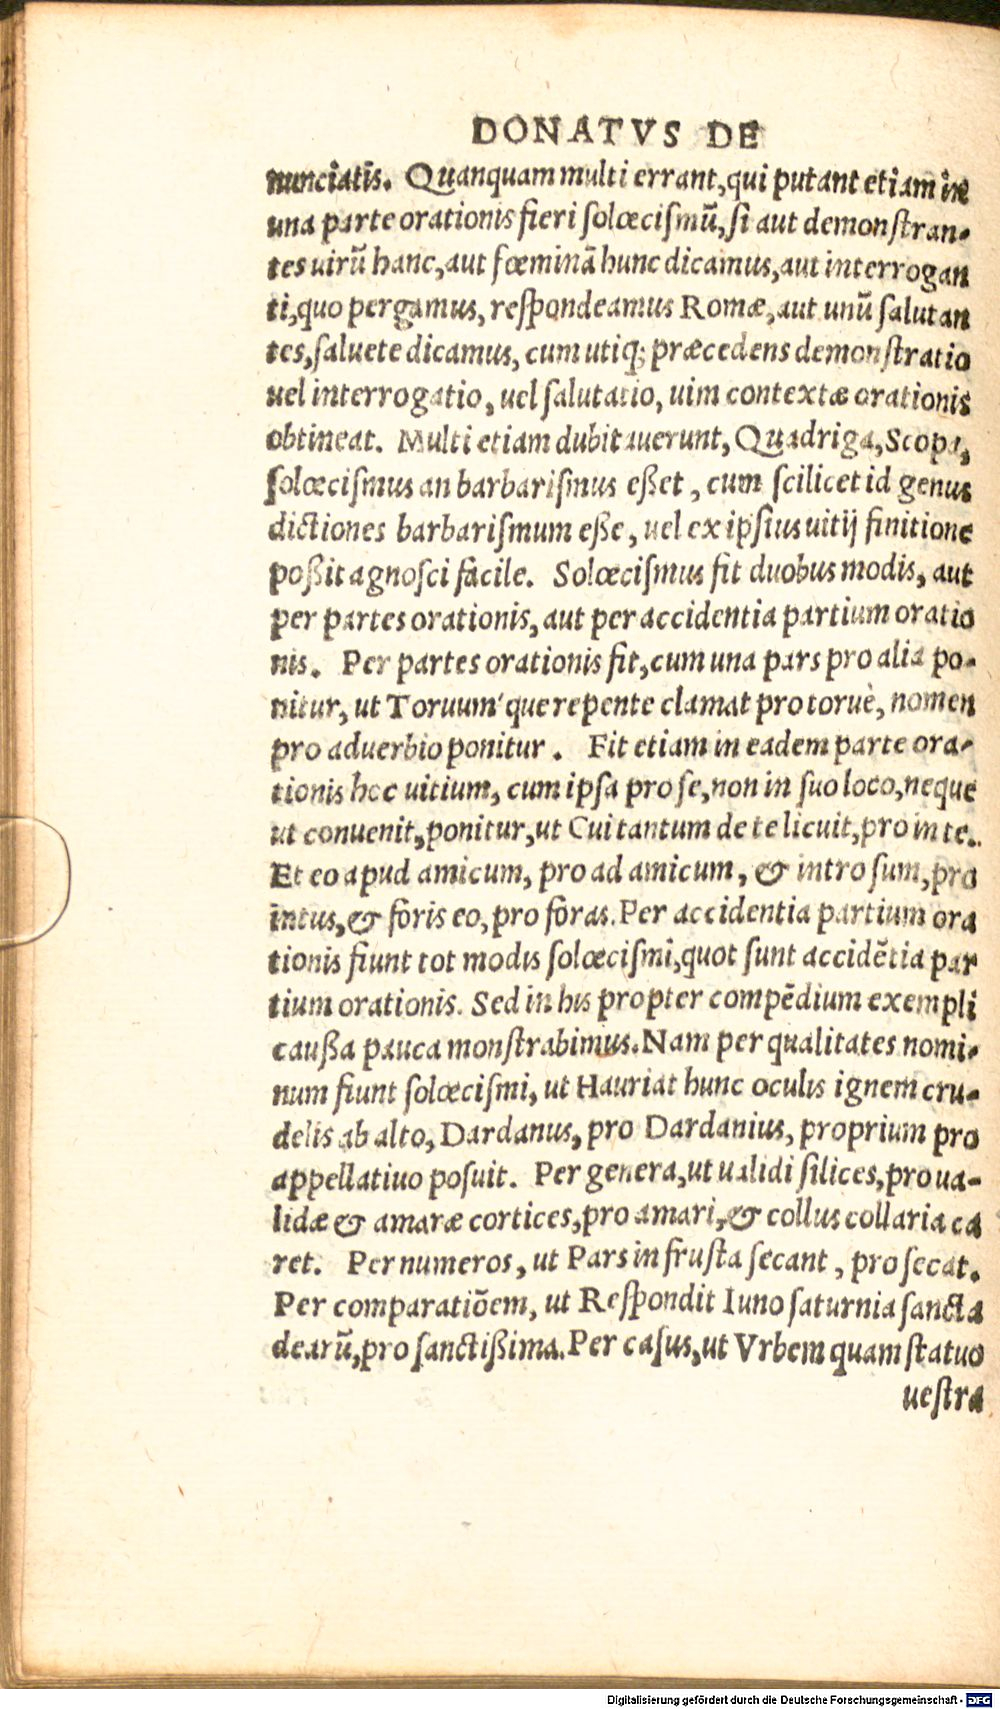 DONATVS DE
nunciatis. Quanquam multi errant, qui putant etiam in
una parte orationis fieri solœcismũ, si aut demonstran-
tes uirũ hanc, aut fœminã hunc dicamus, aut interrogan
ti, quo pergamus, respondeamus Romæ, aut unũ salutan
tes, saluete dicamus, cum utiq; præcedens demonstratio
uel interrogatio, uel salutatio, uim contextæ orationis
obtineat. Multi etiam dubitauerunt, Quadriga, Scopa,
solœcismus an barbarismus eßet, cum scilicet id genus
dictiones barbarismum eße, uel ex ipsius uitij finitione
poßit agnosci facile. Solœcismus fit duobus modis, aut
per partes orationis, aut per accidentia partium oratio
nis. Per partes orationis fit, cum una pars pro alia po-
nitur, ut Toruum'que repente clamat pro toruè, nomen
pro aduerbio ponitur. Fit etiam in eadem parte ora-
tionis hoc uitium, cum ipsa pro se, non in suo loco, neque
ut conuenit, ponitur, ut Cui tantum de te licuit, pro in te.
Et eo apud amicum, pro ad amicum, & intro sum, pro
intus, & foris eo, pro foras. Per accidentia partium ora
tionis fiunt tot modis solœcismi, quot sunt accidẽtia par
tium orationis. Sed in his propter compẽdium exempli
caußa pauca monstrabimus. Nam per qualitates nomi-
num fiunt solœcismi, ut Hauriat hunc oculis ignem cru-
delis ab alto, Dardanus, pro Dardanius, proprium pro
appellatiuo posuit. Per genera, ut ualidi silices, pro ua-
lidæ & amaræ cortices, pro amari, & collus collaria ca
ret. Per numeros, ut Pars in frusta secant, pro secat.
Per comparatiõem, ut Respondit Iuno saturnia sancta
dearũ, pro sanctißima. Per casus, ut Vrbem quam statuo
uestra
Digitalisierung gefördert durch die Deutsche Forschungsgemeinschaft - DFG